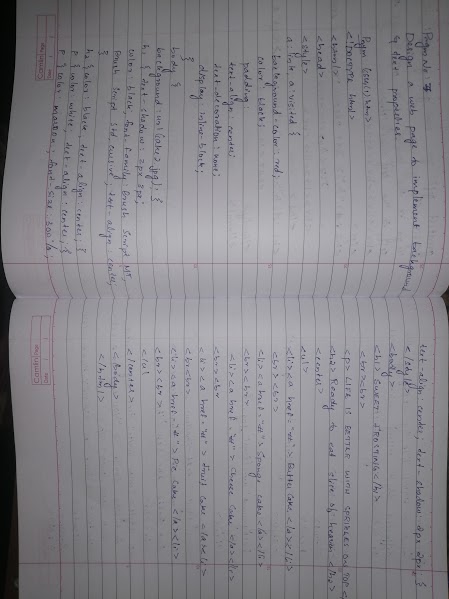 Pgm No: 7
Design a web page to implement background
& text properties
Pgm (css(c).html)
<!DOCTYPE html>
<html>
<head>
<style>
a:link a:visited {
background-color: red;
color: black;
padding
text-align: center;
text-decoration: none;
display: inline-block;
}
body {
background: url(cake2.jpg); }
h1 { text-shadow: 2px 2px;
color: black; font family: Brush Script MT,
Brush Script Std cursive; text-align center;
}
h2 { color: black, text-align center; }
p { color: white, text-align center; }
p { color: maroon; font-size: 300%;
text-align center; text-shadow: 2px 2px; }
</style>
<body>
<h1> SWEET FROSTING </h1>
<br><br>
<p> LIFE IS BETTER WITH SPRINKLES ON TOP
<h2> Ready to eat slice of heaven </h2>
<center>
<ul>
<li><a href="#"> Butter cake </a></li>
<br><br>
<li><a href="#"> Sponge cake </a></li>
<br><br>
<li><a href="#"> Cheese cake </a></li>
<br><br>
<li><a href="#"> Fruit cake </a></li>
<br><br>
<li><a href="#"> Pie cake </a></li>
<br><br>
</ul>
</center>
</body>
</html>